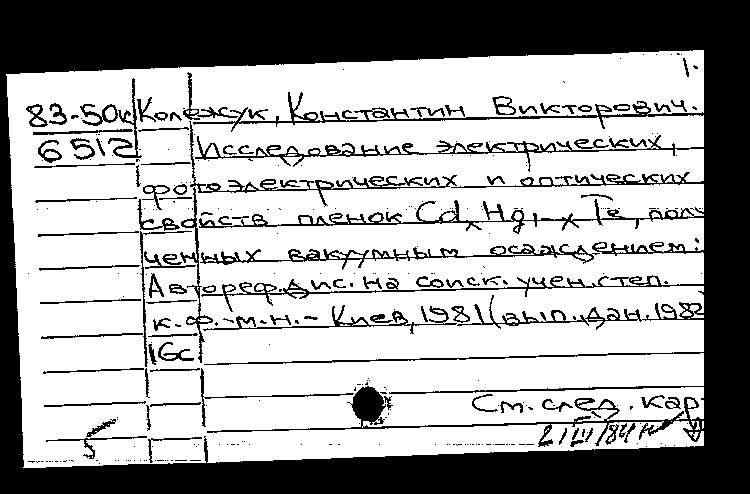 1.
83-50к Колежук, Константин Викторович.
6512 Исследование электрических,
фотоэлектрических и оптических
свойств пленок CdxHg1-xTe, полу
ченных вакуумным осаждением:
Автореф. дис. на соиск. учен. степ.
к.ф.-м.н. - Киев, 1981 (вып. дан. 1982
16с.
См. след. кар
5